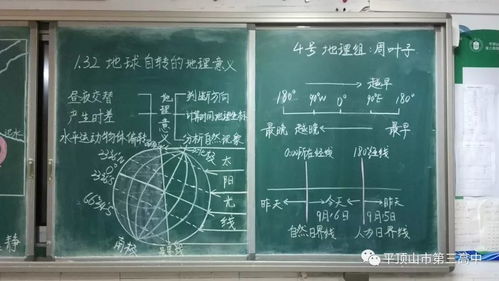 1.3.2 地球自转的地理意义
昼夜交替
产生时差
水平运动物体偏转
地理意义
判断方向
计算时间地理坐标
分析自然现象
23°26′N
0°
23°26′S
66°34′S
南极
晨昏线
太
阳
光
线
静
4号 地理组:周叶子
越早
180° 90°W 0° 90°E 180°
最晚 越晚 最早
0:00所在经线 180°经线
昨天 今天 昨天
9月16日 9月15日
自然日界线 人为日界线
平顶山市第三高中